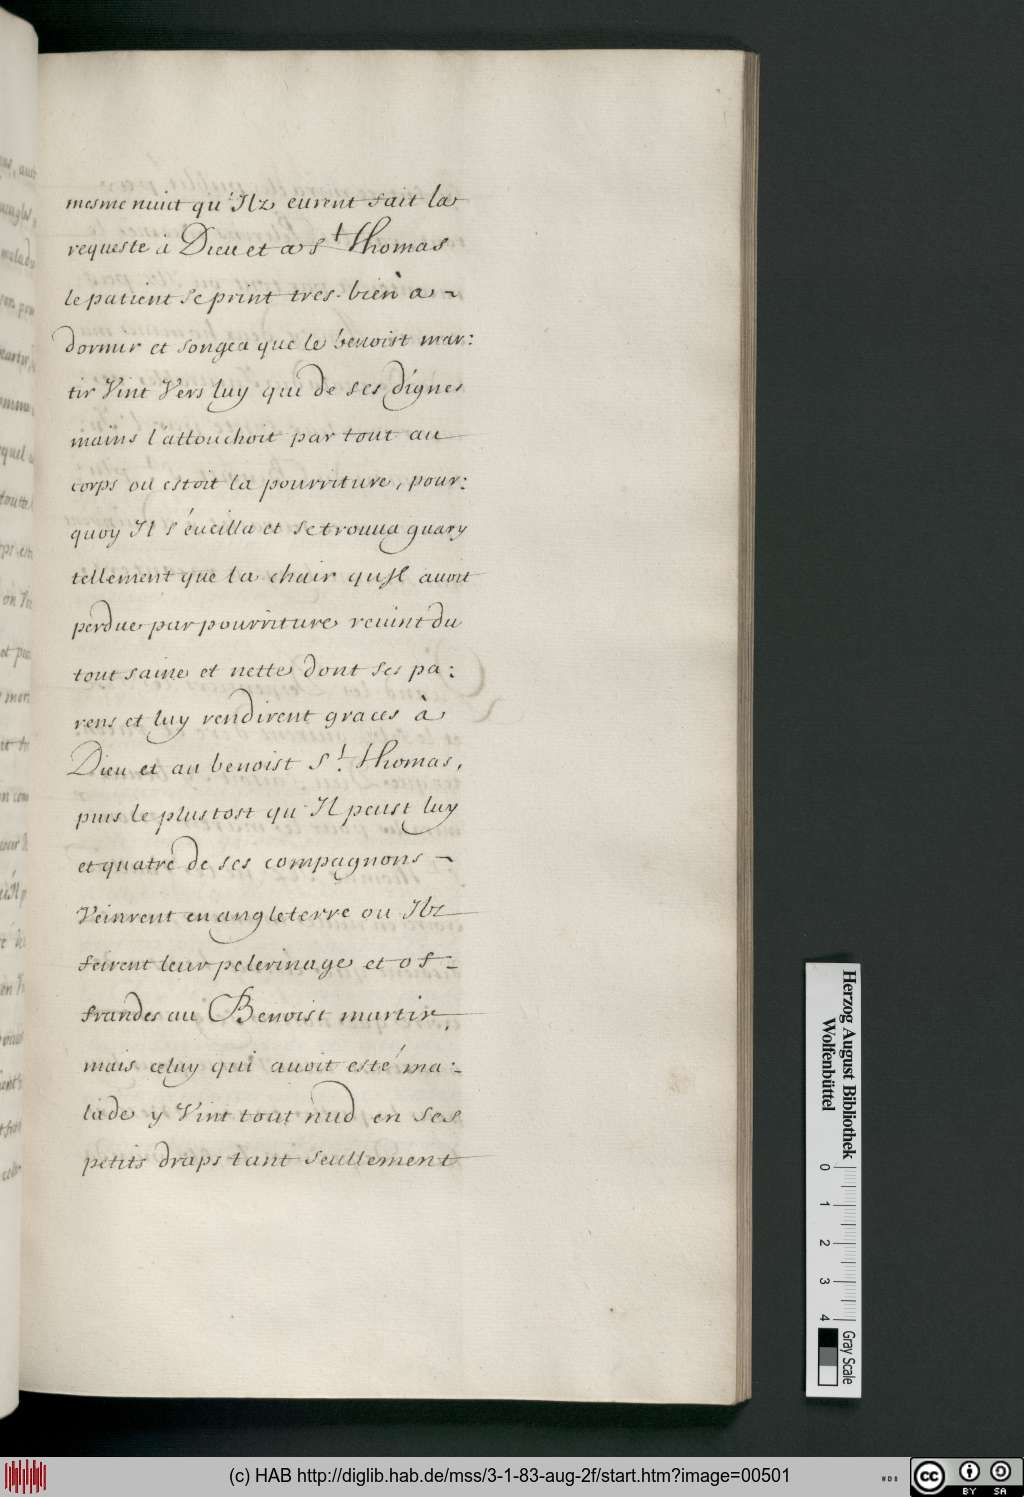 mesme nuict qu'Ilz eurent fait la
requeste à Dieu et a St Thomas
le patient se print tres-bien à a-
dormir et songea que le benoist mar:
tir Vint Vers luy qui de ses dignes
mains l'attouchoit par tout au
corps ou estoit la pourriture, pour:
quoy Il s'éueilla et se trouua guary
tellement que la chair qu'Il auoit
perdue par pourriture reuint du
tout saine et nette dont ses pa:
rens et luy rendirent graces à
Dieu et au benoist St. Thomas,
puis le plustost qu'Il peust luy
et quatre de ses compagnons -
Veinrent en angleterre ou Ilz
feirent leur pelerinage et of-
frandes au Benoist martir,
mais celuy qui auoit esté ma:-
lade y Vint tout nud en ses
petits draps tant seullement
Herzog August Bibliothek
Wolfenbüttel
0 1 2 3 4
Gray Scale
(c) HAB http://diglib.hab.de/mss/3-1-83-aug-2f/start.htm?image=00501
cc BY SA